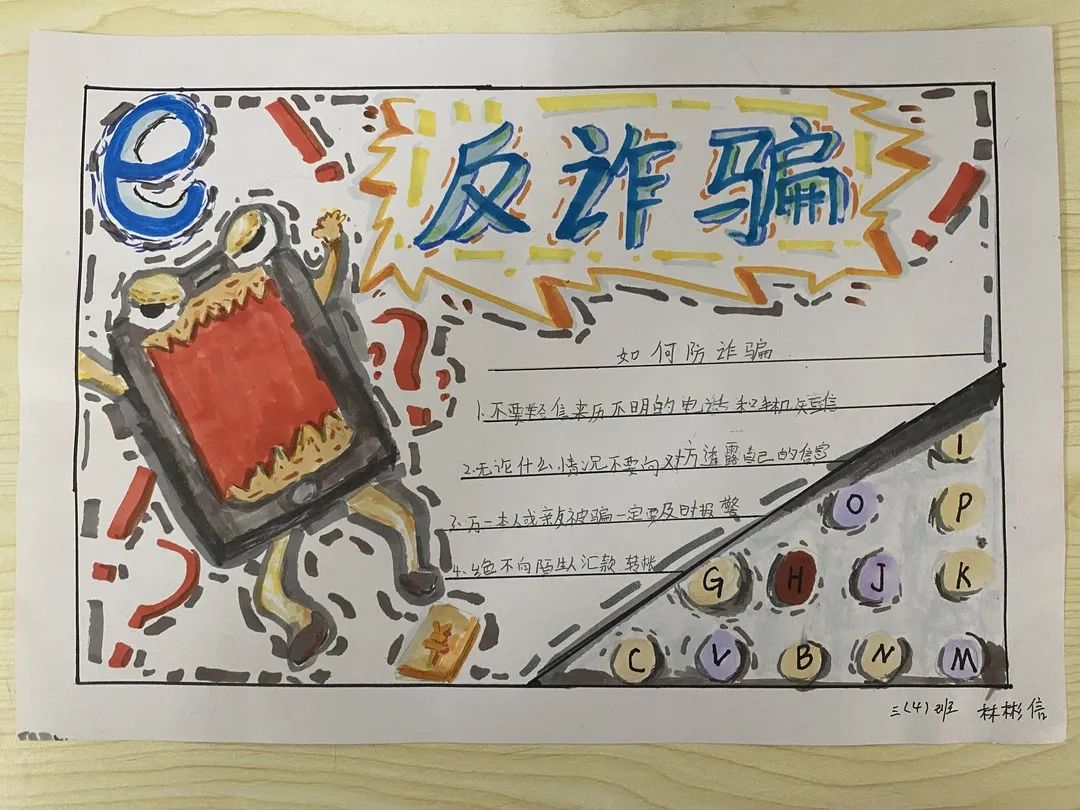 e
反诈骗
如何防诈骗
1.不要轻信来历不明的电话和手机短信
2.无论什么情况不要向对方透露自己的信息
3.万一本人或亲友被骗一定要及时报警
4.绝不向陌生人汇款.转帐
I
O P
G H J K
C V B N M
¥
三(4)班 林彬信